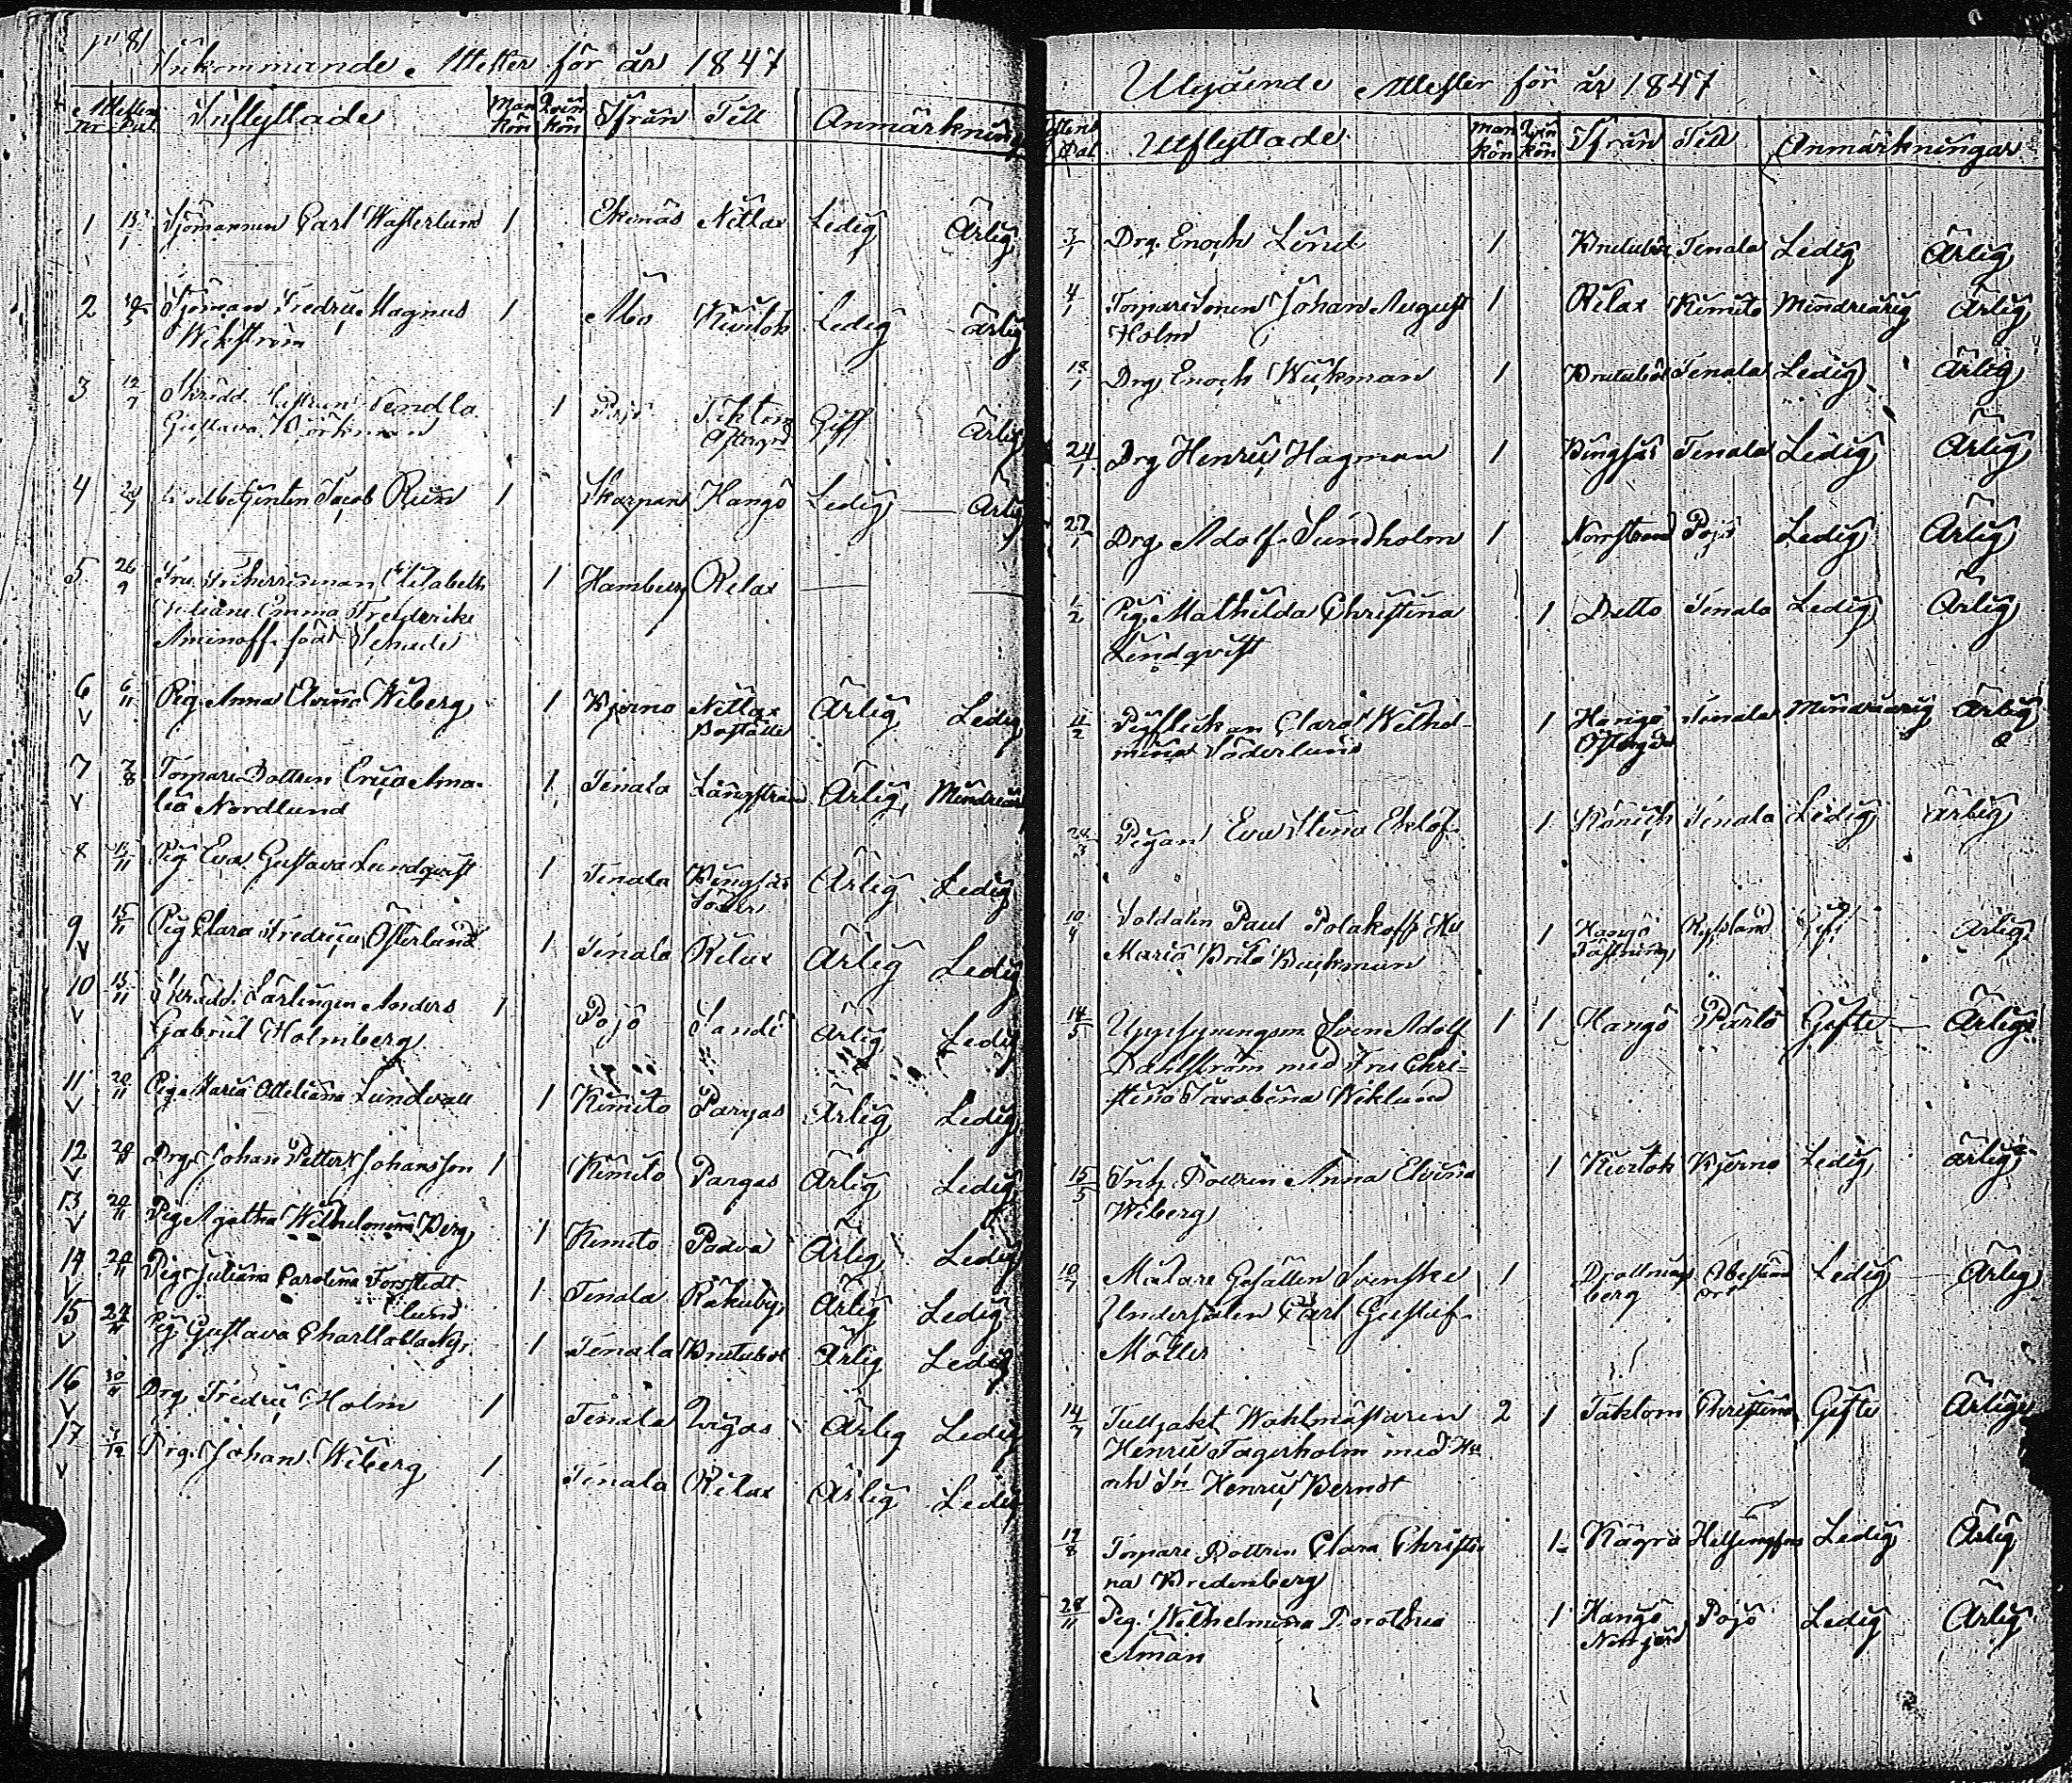 Inkommande Attester för år 1847
Attestens Nr Dat Inflyttade Man kön Qvin kön Ifrån Till Anmärkning
1 15/1 Sjömannen Carl Wasterlund 1 Ekenäs Nitlax Ledig Ärlig
2 Sjöman Fredric Magnus 1 Åbo Kivitok Ledig ärlig
Wikström
3 12/7 Skrädd. Hustrun Vendla 1 Pojo Täktom Gift Ärlig
Gustava Björkman
4 Jacob Rün 1 Skarpan Hangö Ledig Ärlig
5 26/9 Fru Friherrinnan Elisabeth 1 Hamburg Rilax
Juliane Emma Frederike
Aminoff född
6 6/11 Pig. Anna Elvina Wiberg 1 Kjerno Nitlax Ärlig Ledig
V Boställe
7 7/8 Torpare Dottren Erica Ama- 1 Tenala Långstrand Ärlig Mindreårig
V lia Nordlund
8 15/11 Pig Eva Gustava Lundqvist 1 Tenala Bengtsår Ärlig Ledig
Söder
9 15/11 Pig Clara Fredrica Österlund 1 Tenala Rilax Ärlig Ledig
V
10 15/11 Skrädd. Lärlingen Anders 1 Pojo Sandö Ärlig Ledig
V Gabriel Holmberg
11 20/11 Pig. Maria Ottiliana Lundvall 1 Kimito Pargas Ärlig Ledig
V
12 20/11 Drg. Johan Petter Johansson 1 Kimito Pargas Ärlig Ledig
V
13 20/11 Pig Agatha Wilhelmina Berg 1 Kimito Padva Ärlig Ledig
V
14 20/11 Pig Juliana Carolina Forstedt 1 Tenala Råkuby Ärlig Ledig
V lund
15 24/11 Pig Gustava Charlotta Ny- 1 Tenala Knutubol Ärlig Ledig
V
16 30/11 Drg Fredric Holm 1 Tenala Ärlig Ledig
V
17 3/12 Drg. Johan Wiberg 1 Tenala Rilax Ärlig Ledig
V
Utgående Attester för år 1847
Attens Dat Utflyttade Man kön Qvin kön Ifrån Till Anmärkningar
3/1 Drg. Enoch Lind 1 Knutubol Tenala Ledig Ärlig
4/1 Torpare Sonen Johan August 1 Rilax Kimito Mindreårig Ärlig
Holm
18/1 Drg. Enoch Wickman 1 Knutubol Tenala Ledig Ärlig
24/1 Drg Henric Hagman 1 Bengtsår Tenala Ledig Ärlig
27/1 Drg. Adolf Sundholm 1 Norrstrand Pojo Ledig Ärlig
1/2 Pig. Mathilda Christina 1 Ditto Tenala Ledig Ärlig
Lindqvist
11/2 Pigflickan Clara Wilhel- 1 Hangö Tenala Mindreårig Ärlig
mina Söderlund Östergård
24/3 Pigan Eva Stina Eklöf 1 Tenala Ledig ärlig
10/4 Soldaten Paul Polakoff Hu 1 Hangö Ryssland Gift Ärlig
Maria Brita Backman Fästning
14/5 Uppsyningsm Sven Adolf 1 1 Hangö Gifte Ärliga
Dahlström med Fru Chri-
stina Jacobina Wiklund
15/5 Inh. Dottren Anna Elvina 1 Kivitok Kjerno Ledig ärlig
Wiberg
10/7 Målare Gesällen Svenske 1 Drottning Ledig Ärlig
Undersåten Carl Gustaf berg ort
Möller
14/7 Tulljakt Wahlmästaren 2 1 Täktom Christina Gifte Ärlige
Henric Fagerholm med Hu
och Sn Henric Berndt
17/8 Torpare Dottren Clara Christi- 1 Kågra Helsingfors Ledig Ärlig
na Bredenberg
28/11 Pig. Wilhelmina Dorothea 1 Hangö Pojo Ledig Ärlig
Åman